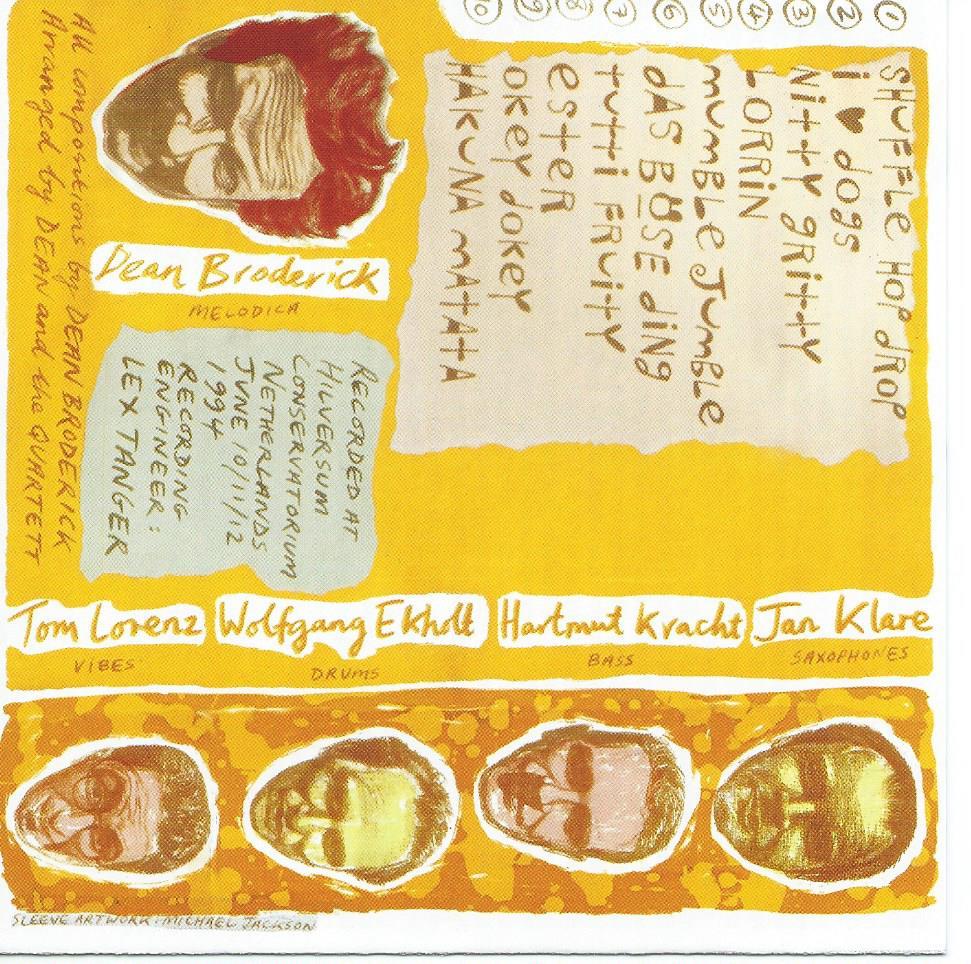 1 SHUFFLE HOP dROP
2 i ♥ dogs
3 Nitty gRitty
4 LORRiN
5 mumBLe JumBLe
6 dAS BÖSE diNg
7 tutti FRuity
8 esteR
9 okey dokey
10 HAkuNA mAtAtA
Dean Broderick
MELODICA
RECORDED AT
HILVERSUM
CONSERVATORIUM
NETHERLANDS
JUNE 10/11/12
1994
RECORDING
ENGINEER:
LEX TANGER
All compositions by DEAN BRODERICK
Arranged by DEAN and the QUARTETT
Tom Lorenz
VIBES
Wolfgang Ekholt
DRUMS
Hartmut Kracht
BASS
Jan Klare
SAXOPHONES
SLEEVE ARTWORK: MICHAEL JACKSON